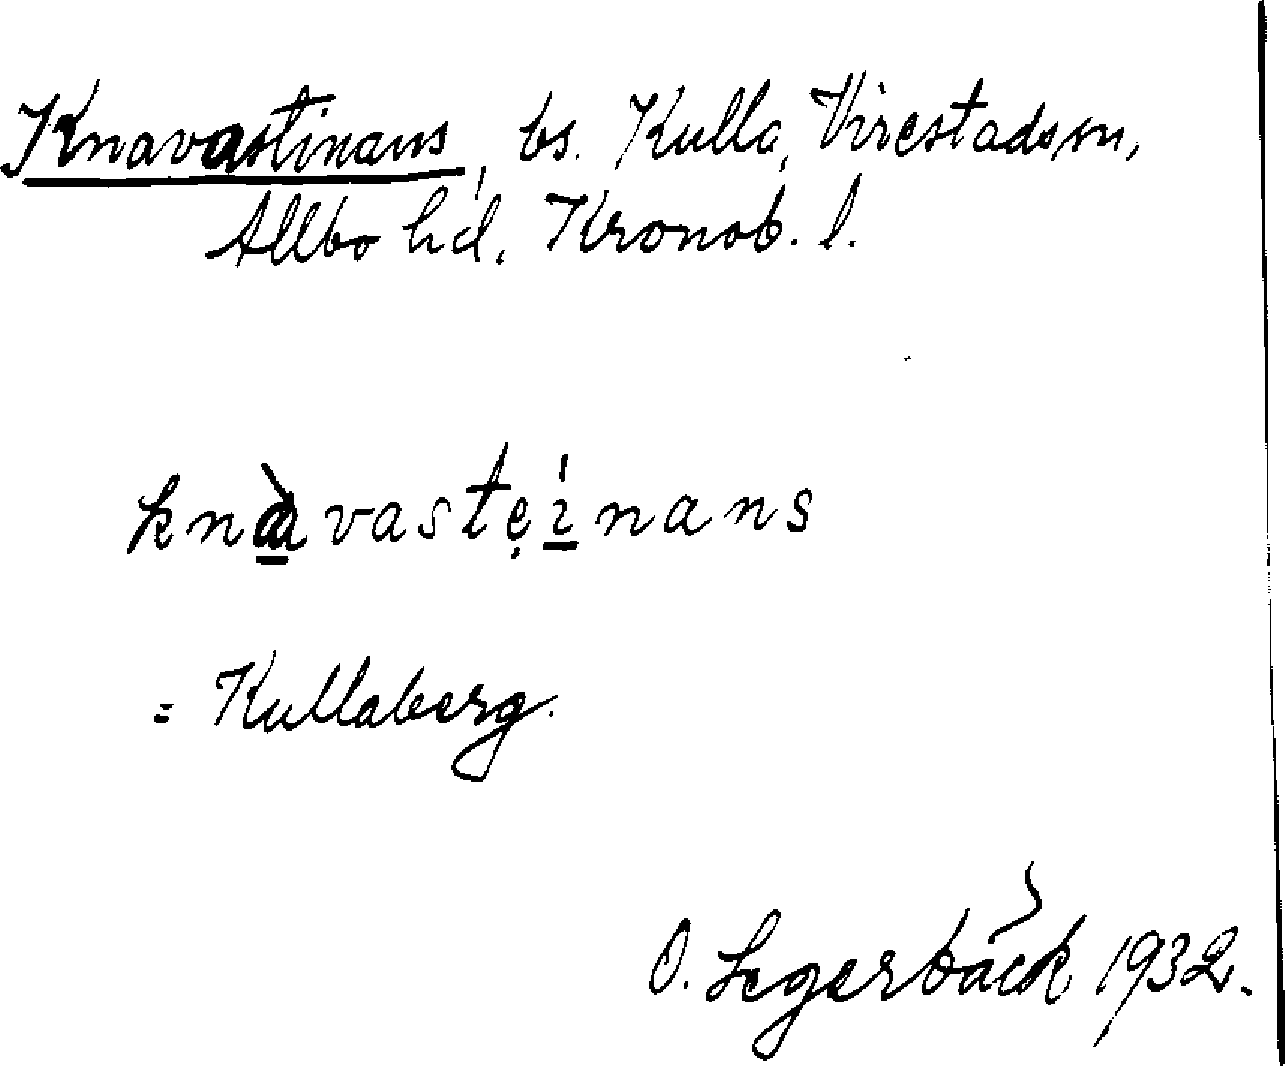 Knavastinans, bs. Kulla, Virestads sn,
Allbo hd, Kronob. l.
knàvastẹinans
= Kullaberg.
O. Segerbäck 1932.